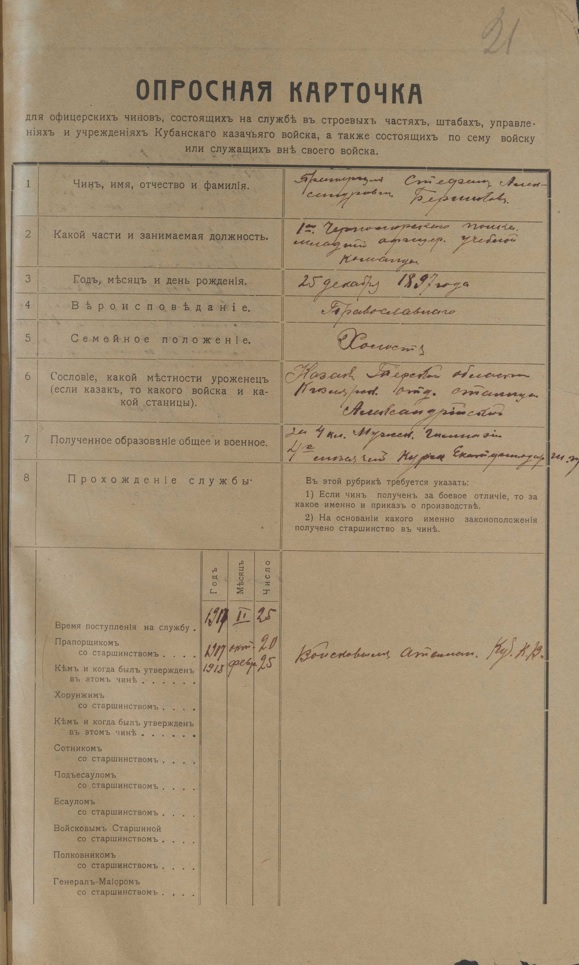 21
ОПРОСНАЯ КАРТОЧКА
для офицерскихъ чиновъ, состоящихъ на службѣ въ строевыхъ частяхъ, штабахъ, управле-
ніяхъ и учрежденіяхъ Кубанскаго казачьяго войска, а также состоящихъ по сему войску
или служащихъ внѣ своего войска.
1 Чинъ, имя, отчество и фамилія.
Прапорщикъ Стефанъ Алек-
сандровичъ
2 Какой части и занимаемая должность.
1го Черноморскаго полка
младшій офицер. учебной
команды
3 Годъ, мѣсяцъ и день рожденія.
25 декабря 1897 года
4 Вѣроисповѣданіе.
Православнаго
5 Семейное положеніе.
Холостъ
6 Сословіе, какой мѣстности уроженецъ
(если казак, то какого войска и ка-
кой станицы).
Казакъ Терской области
отд. станицы
Александрійской
7 Полученное образованіе общее и военное.
за 4 кл. Мужск. Гимназіи
8 Прохожденіе службы:
Въ этой рубрикѣ требуется указать:
1) Если чинъ полученъ за боевое отличіе, то за
какое именно и приказ о производствѣ.
2) На основаніи какого именно законоположенія
получено старшинство въ чинѣ.
Годъ Мѣсяцъ Число
Время поступленія на службу . 1917 II 25
Прапорщикомъ
со старшинствомъ . . . . 1917 окт. 20
Кѣмъ и когда былъ утвержден
въ этомъ чинѣ . . . . . . 1918 февр. 25
Войсковымъ атаман. Куб. К. В.
Хорунжимъ
со старшинствомъ . . . .
Кѣмъ и когда былъ утвержден
въ этомъ чинѣ . . . . . .
Сотникомъ
со старшинствомъ . . . .
Подъесауломъ
со старшинствомъ . . . .
Есауломъ
со старшинствомъ . . . .
Войсковымъ Старшиной
со старшинствомъ . . . .
Полковникомъ
со старшинствомъ . . . .
Генералъ-Маіоромъ
со старшинствомъ . . . .